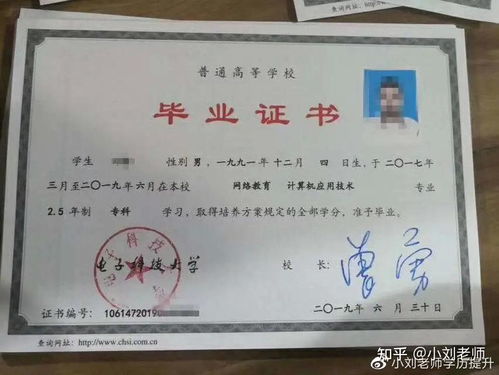 查询网址：http://www.c
查询网址：
普通高等学校
毕业证书
学生 性别 男，一九九一年 十二月 四 日生，于二〇一七年
三月至二〇一九年 六月在本校 网络教育 计算机应用技术 专业
2.5 年制 专科 学习，取得培养方案规定的全部学分，准予毕业。
电子科技大学
校 长：
二〇一九年 六 月 三十日
证书编号：1061472019
查询网址：http://www.chsi.com.cn
知乎 @小刘老师
@小刘老师学历提升